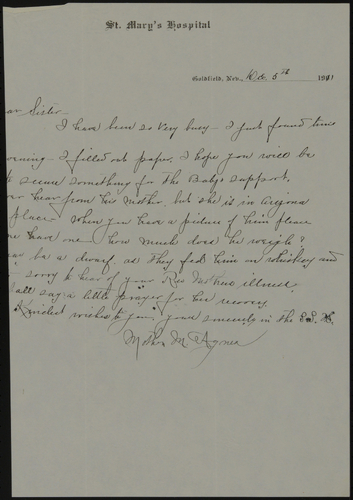 St. Mary's Hospital
Goldfield, Nev., Oct. 5th 1911
ar Sister—
I have been so very busy— I just found time
orning— I filled out paper. I hope you will be
to secure something for the Baby's support.
er hear from his Mother, but she is in Arizona
place. When you have a picture of him please
me have one— how much does he weigh?
be a dwarf as they fed him on whiskey and
sorry to hear of your Rev Mothers illness.
all say a little prayer for her recovery
Kindest wishes to you, yours sincerely in the
Mother M. Agnes